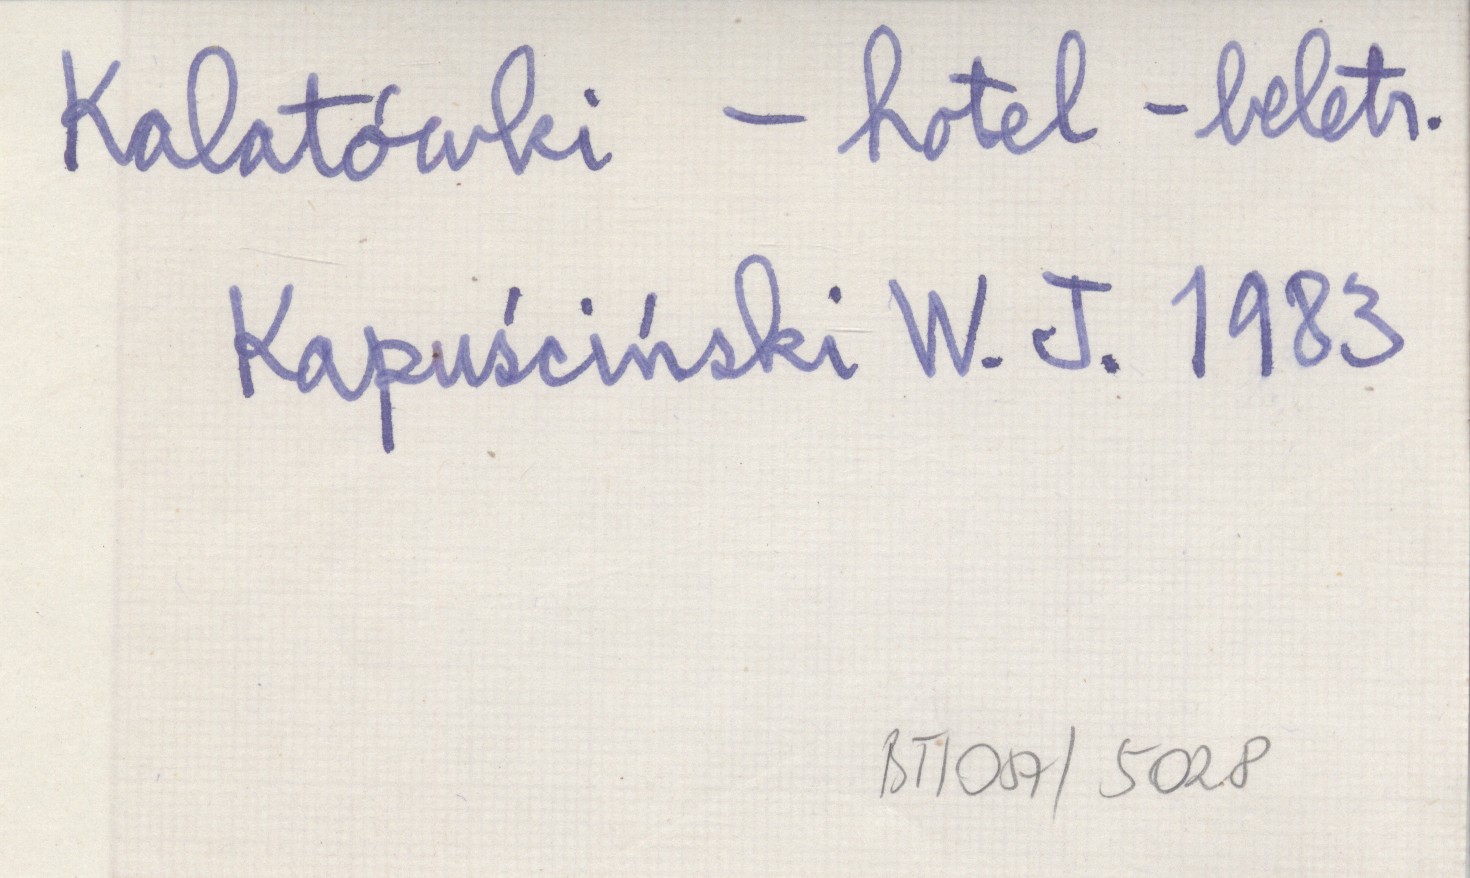 Kalatówki - hotel - beletr.
Kapuściński W. J. 1983
BT/087/5028